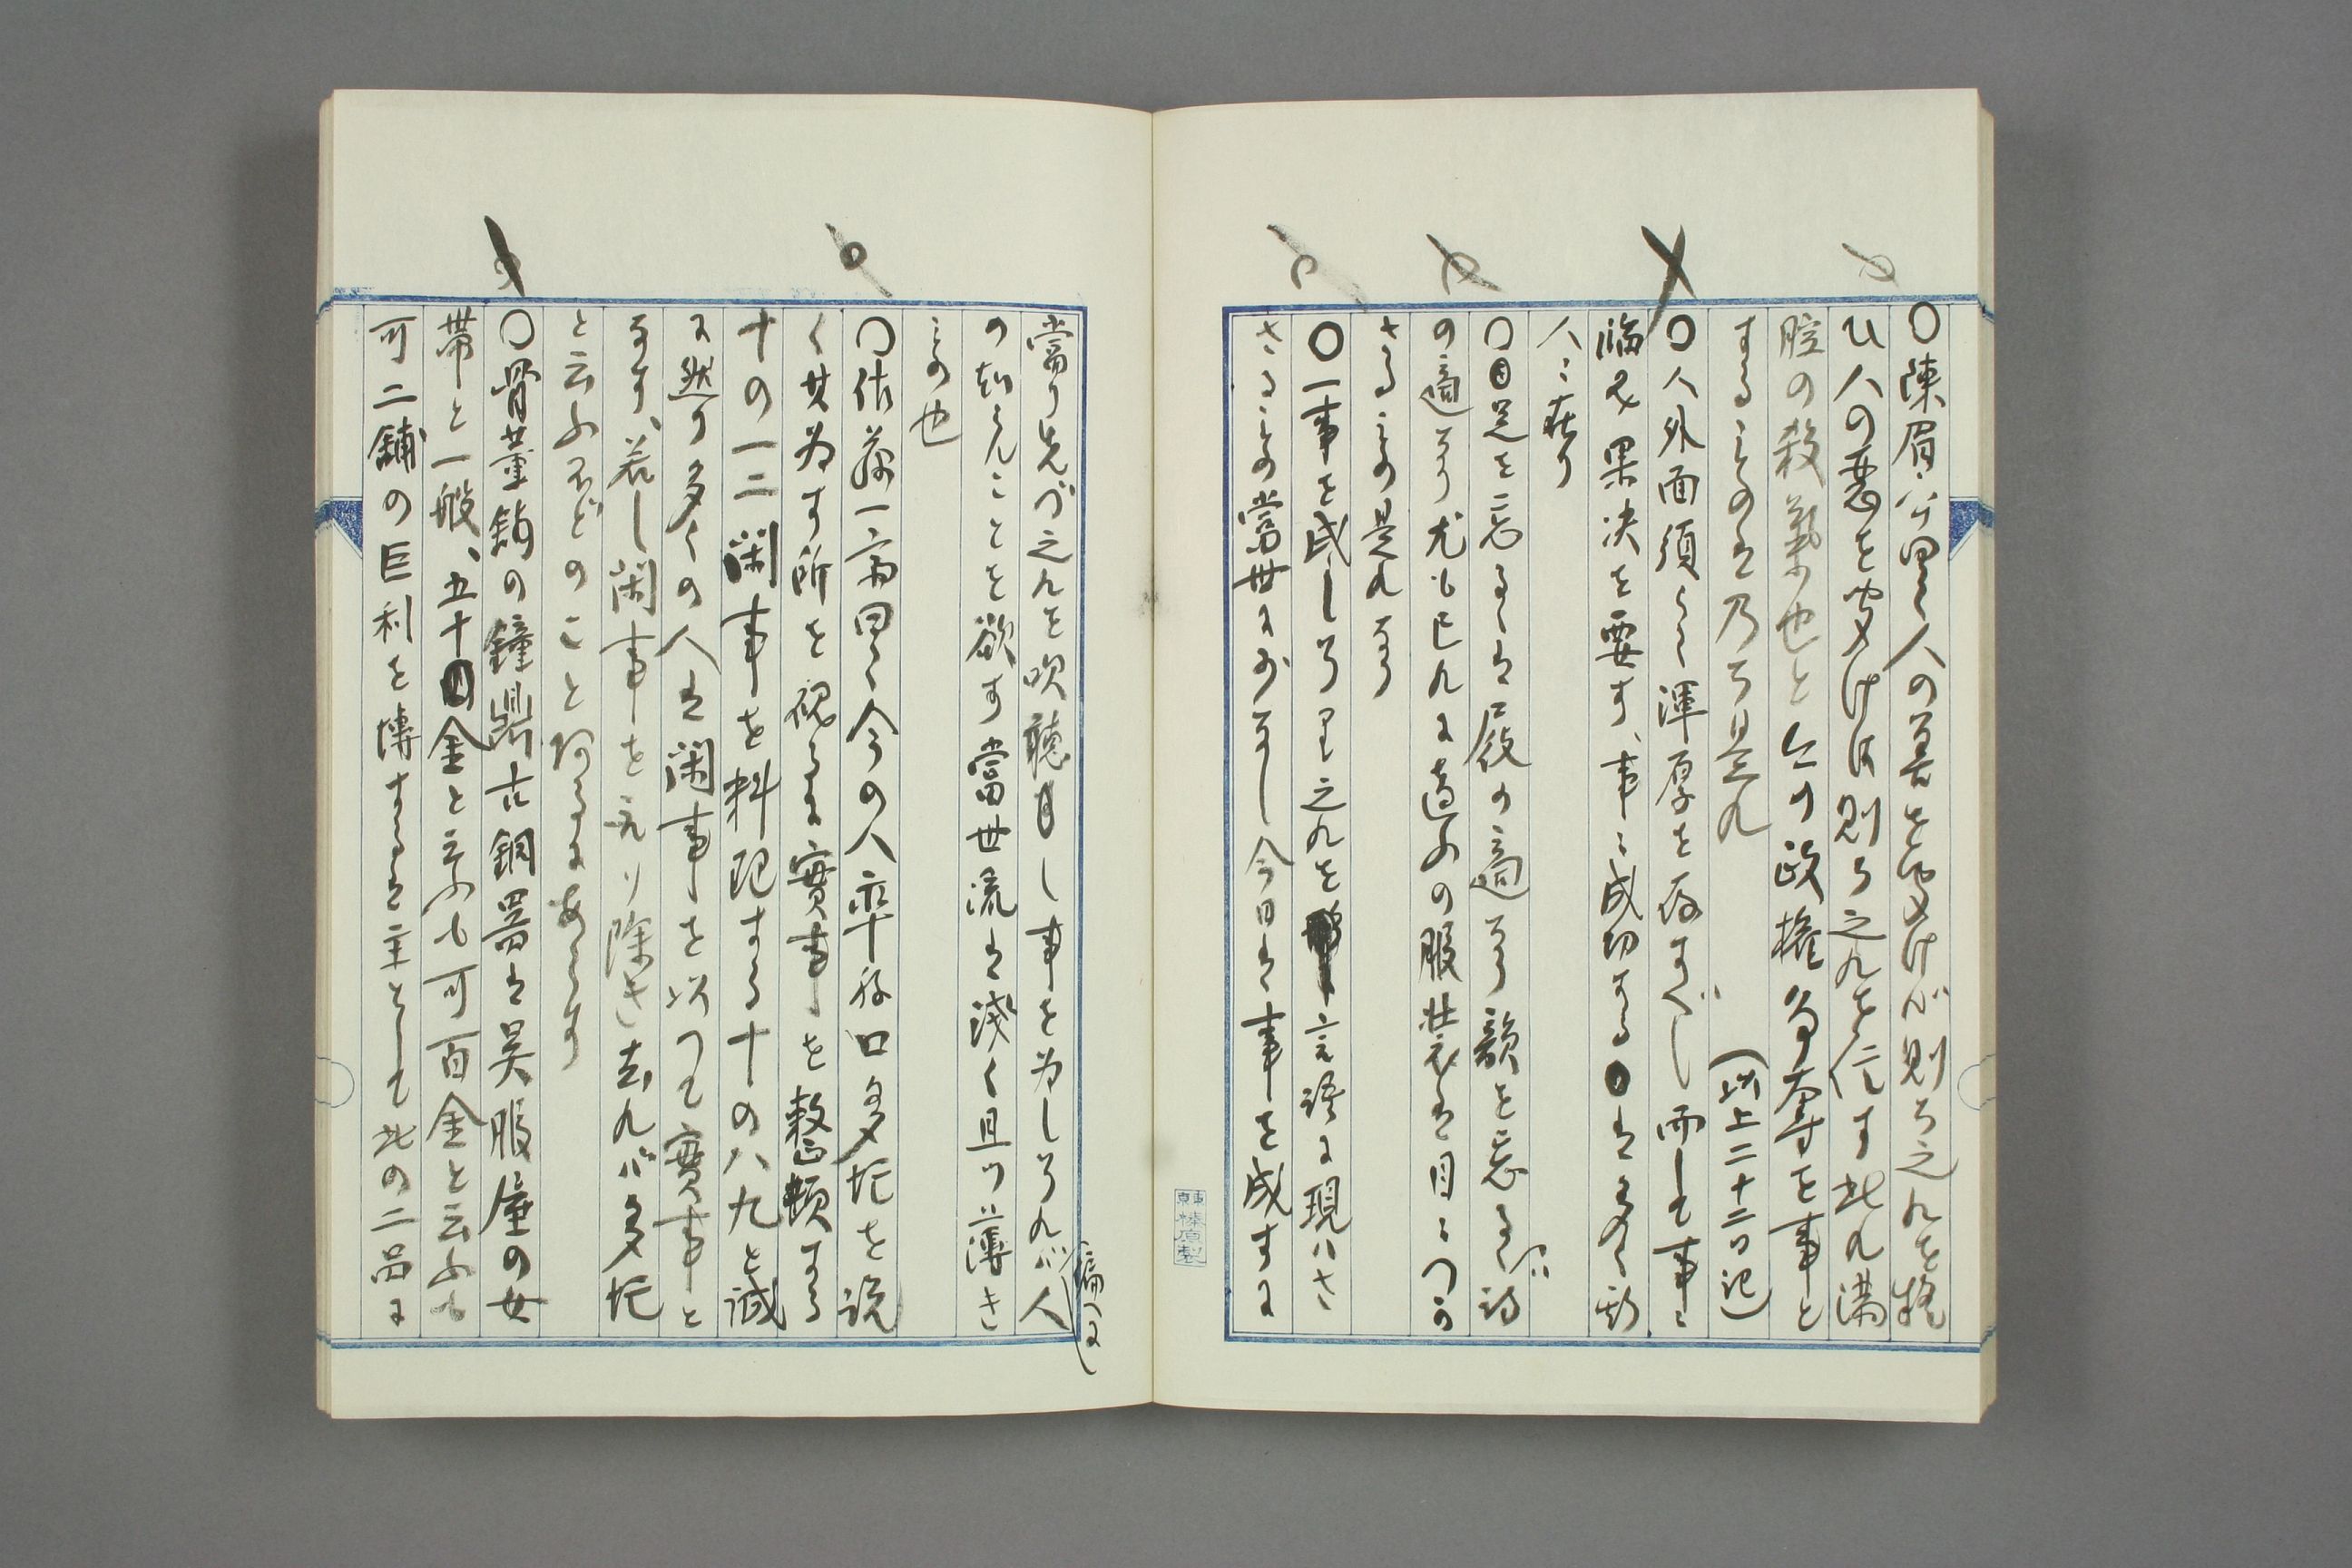 〇陳眉公曰く人の善を聞けば則ち之れを疑
ひ人の悪を聞けば則ち之れを信す此れ満
腔の殺気也と今の政権争奪を事と
するものは乃ち是れ (以上二十二日記)
〇人外面須らく渾厚を存すべし而して事に
臨み果決を要す、事に成功するは多く斯
人に在り
〇足を忘るゝは屐の適なり韻を忘るゝは詩
の適なり尤も己れに適ふの服装は目につか
さるもの是れなり
〇一事を成しうりて之れを言語に現はさ
さるもの當世に少なし今日は事を成すに
當り先づ之れを吹聴し事を為しうれバ人
(偏へに)
の知らんことを欲す當世流は浅く且つ薄き
もの也
〇佐藤一斎曰く今の人率ね口多忙を説
く其為す所を視るに實事を整頓する
十の一二閑事を料理する十の八九と誠
に然り多くの人は閑事を以つて實事と
なす、若し閑事を元り除き去れバ多忙
と云ふほどのこと何るにあらす
〇骨董舗の鐘鼎古銅器は呉服屋の女
帯と一般、五十金と云ふも可百金と云ふも
可二舗の巨利を博するは主として此の二品に
榛原製